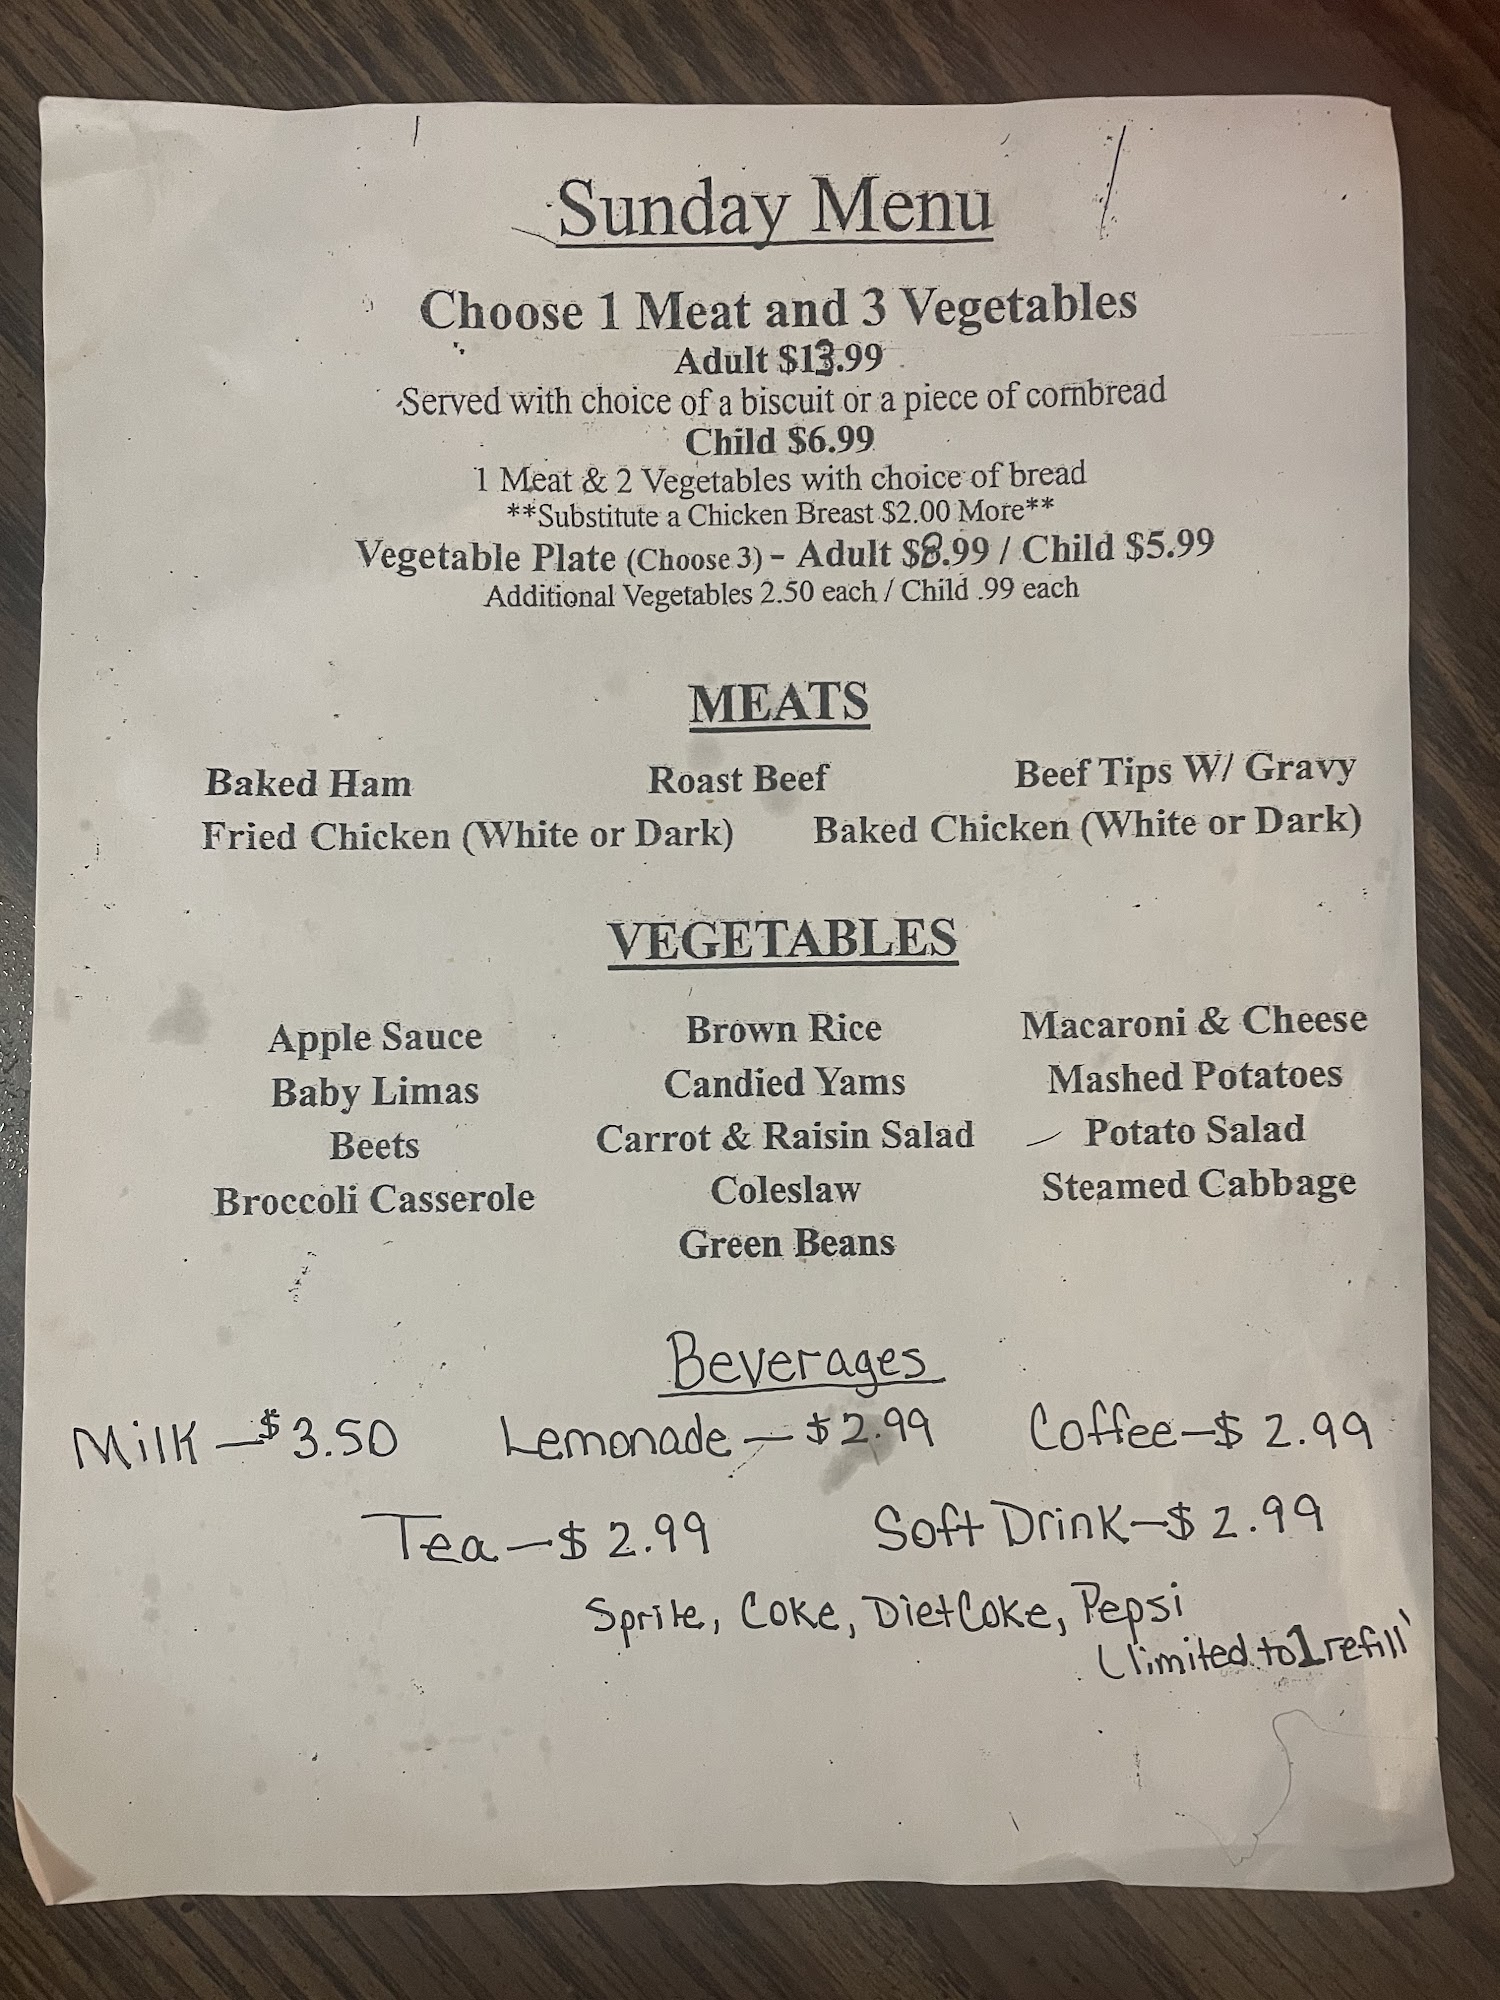 Sunday Menu
Choose 1 Meat and 3 Vegetables
Adult $13.99
Served with choice of a biscuit or a piece of cornbread
Child $6.99
1 Meat & 2 Vegetables with choice of bread
**Substitute a Chicken Breast $2.00 More**
Vegetable Plate (Choose 3) - Adult $8.99 / Child $5.99
Additional Vegetables 2.50 each / Child .99 each
MEATS
Baked Ham Roast Beef Beef Tips W/ Gravy
Fried Chicken (White or Dark) Baked Chicken (White or Dark)
VEGETABLES
Apple Sauce Brown Rice Macaroni & Cheese
Baby Limas Candied Yams Mashed Potatoes
Beets Carrot & Raisin Salad Potato Salad
Broccoli Casserole Coleslaw Steamed Cabbage
Green Beans
Beverages
Milk - $3.50 Lemonade - $2.99 Coffee - $2.99
Tea - $2.99 Soft Drink - $2.99
Sprite, Coke, Diet Coke, Pepsi
(limited to 1 refill'